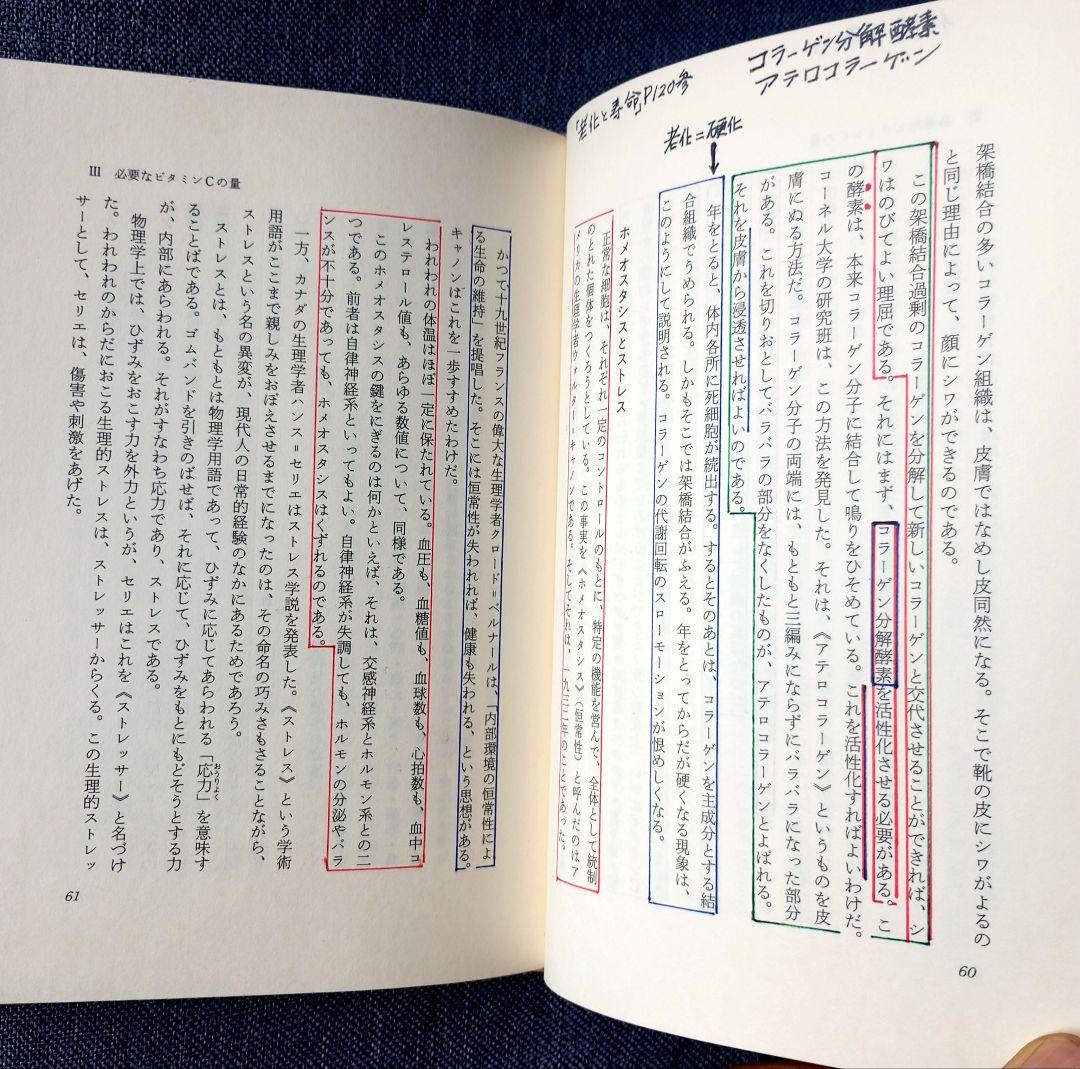 コラーゲン分解酵素
アテロコラーゲン
「老化と寿命」P120参
老化=硬化
架橋結合の多いコラーゲン組織は、皮膚ではなめし皮同然になる。そこで靴の皮にシワがよるの
と同じ理由によって、顔にシワができるのである。
この架橋結合過剰のコラーゲンを分解して新しいコラーゲンと交代させることができれば、シ
ワはのびてよい理屈である。それにはまず、コラーゲン分解酵素を活性化させる必要がある。こ
の酵素は、本来コラーゲン分子に結合して鳴りをひそめている。これを活性化すればよいわけだ。
コーネル大学の研究班は、この方法を発見した。それは、《アテロコラーゲン》というものを皮
膚にぬる方法だ。コラーゲン分子の両端には、もともと三編みにならずにバラバラになった部分
がある。これを切りおとしてバラバラの部分をなくしたものが、アテロコラーゲンとよばれる。
それを皮膚から浸透させればよいのである。
年をとると、体内各所に死細胞が続出する。するとそのあとは、コラーゲンを主成分とする結
合組織でうめられる。しかもそこでは架橋結合がふえる。年をとってからだが硬くなる現象は、
このようにして説明される。コラーゲンの代謝回転のスローモーションが恨めしくなる。
ホメオスタシスとストレス
正常な細胞は、それぞれ一定のコントロールのもとに、特定の機能を営んで、全体として統制
のとれた個体をつくろうとしている。この事実を《ホメオスタシス》(恒常性)と呼んだのはア
メリカの生理学者ウォルター=キャノンである。そしてそれは、一九三二年のことであった。
60
Ⅲ 必要なビタミンCの量
かつて十九世紀フランスの偉大な生理学者クロード=ベルナールは、「内部環境の恒常性によ
る生命の維持」を提唱した。そこには恒常性が失われれば、健康も失われる、という思想がある。
キャノンはこれを一歩すすめたわけだ。
われわれの体温はほぼ一定に保たれている。血圧も、血糖値も、血球数も、心拍数も、血中コ
レステロール値も、あらゆる数値について、同様である。
このホメオスタシスの鍵をにぎるのは何かといえば、それは、交感神経系とホルモン系との二
つである。前者は自律神経系といってもよい。自律神経系が失調しても、ホルモンの分泌やバラ
ンスが不十分であっても、ホメオスタシスはくずれるのである。
一方、カナダの生理学者ハンス=セリエはストレス学説を発表した。《ストレス》という学術
用語がここまで親しみをおぼえさせるまでになったのは、その命名の巧みさもさることながら、
ストレスという名の異変が、現代人の日常的経験のなかにあるためであろう。
ストレスとは、もともとは物理学用語であって、ひずみに応じてあらわれる「応力」を意味す
おうりよく
ることばである。ゴムバンドを引きのばせば、それに応じて、ひずみをもとにもどそうとする力
が、内部にあらわれる。それがすなわち応力であり、ストレスである。
物理学上では、ひずみをおこす力を外力というが、セリエはこれを《ストレッサー》と名づけ
た。われわれのからだにおこる生理的ストレスは、ストレッサーからくる。この生理的ストレッ
サーとして、セリエは、傷害や刺激をあげた。
61